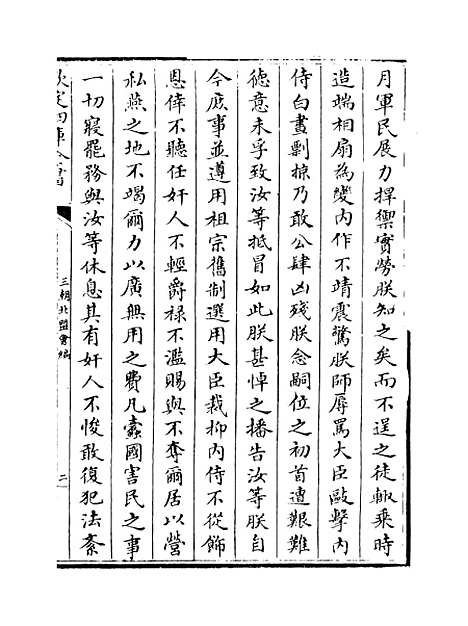 月軍民展力捍禦實勞朕知之矣而不逞之徒輙乗時
造端相扇為變内作不靖震驚朕師辱罵大臣毆擊内
侍白晝剽掠乃敢公肆凶殘朕念嗣位之初首遭艱難
徳意未孚致汝等抵冒如此朕甚悼之播告汝等朕自
今庶事並遵用祖宗舊制選用大臣裁抑内侍不從飾
恩倖不聽任奸人不輕爵禄不濫賜與不奪爾居以營
私燕之地不竭爾力以廣無用之費凡蠧國害民之事
一切寢罷務與汝等休息其有奸人不悛敢復犯法紊
欽定四庫全書
三朝北盟會編
二